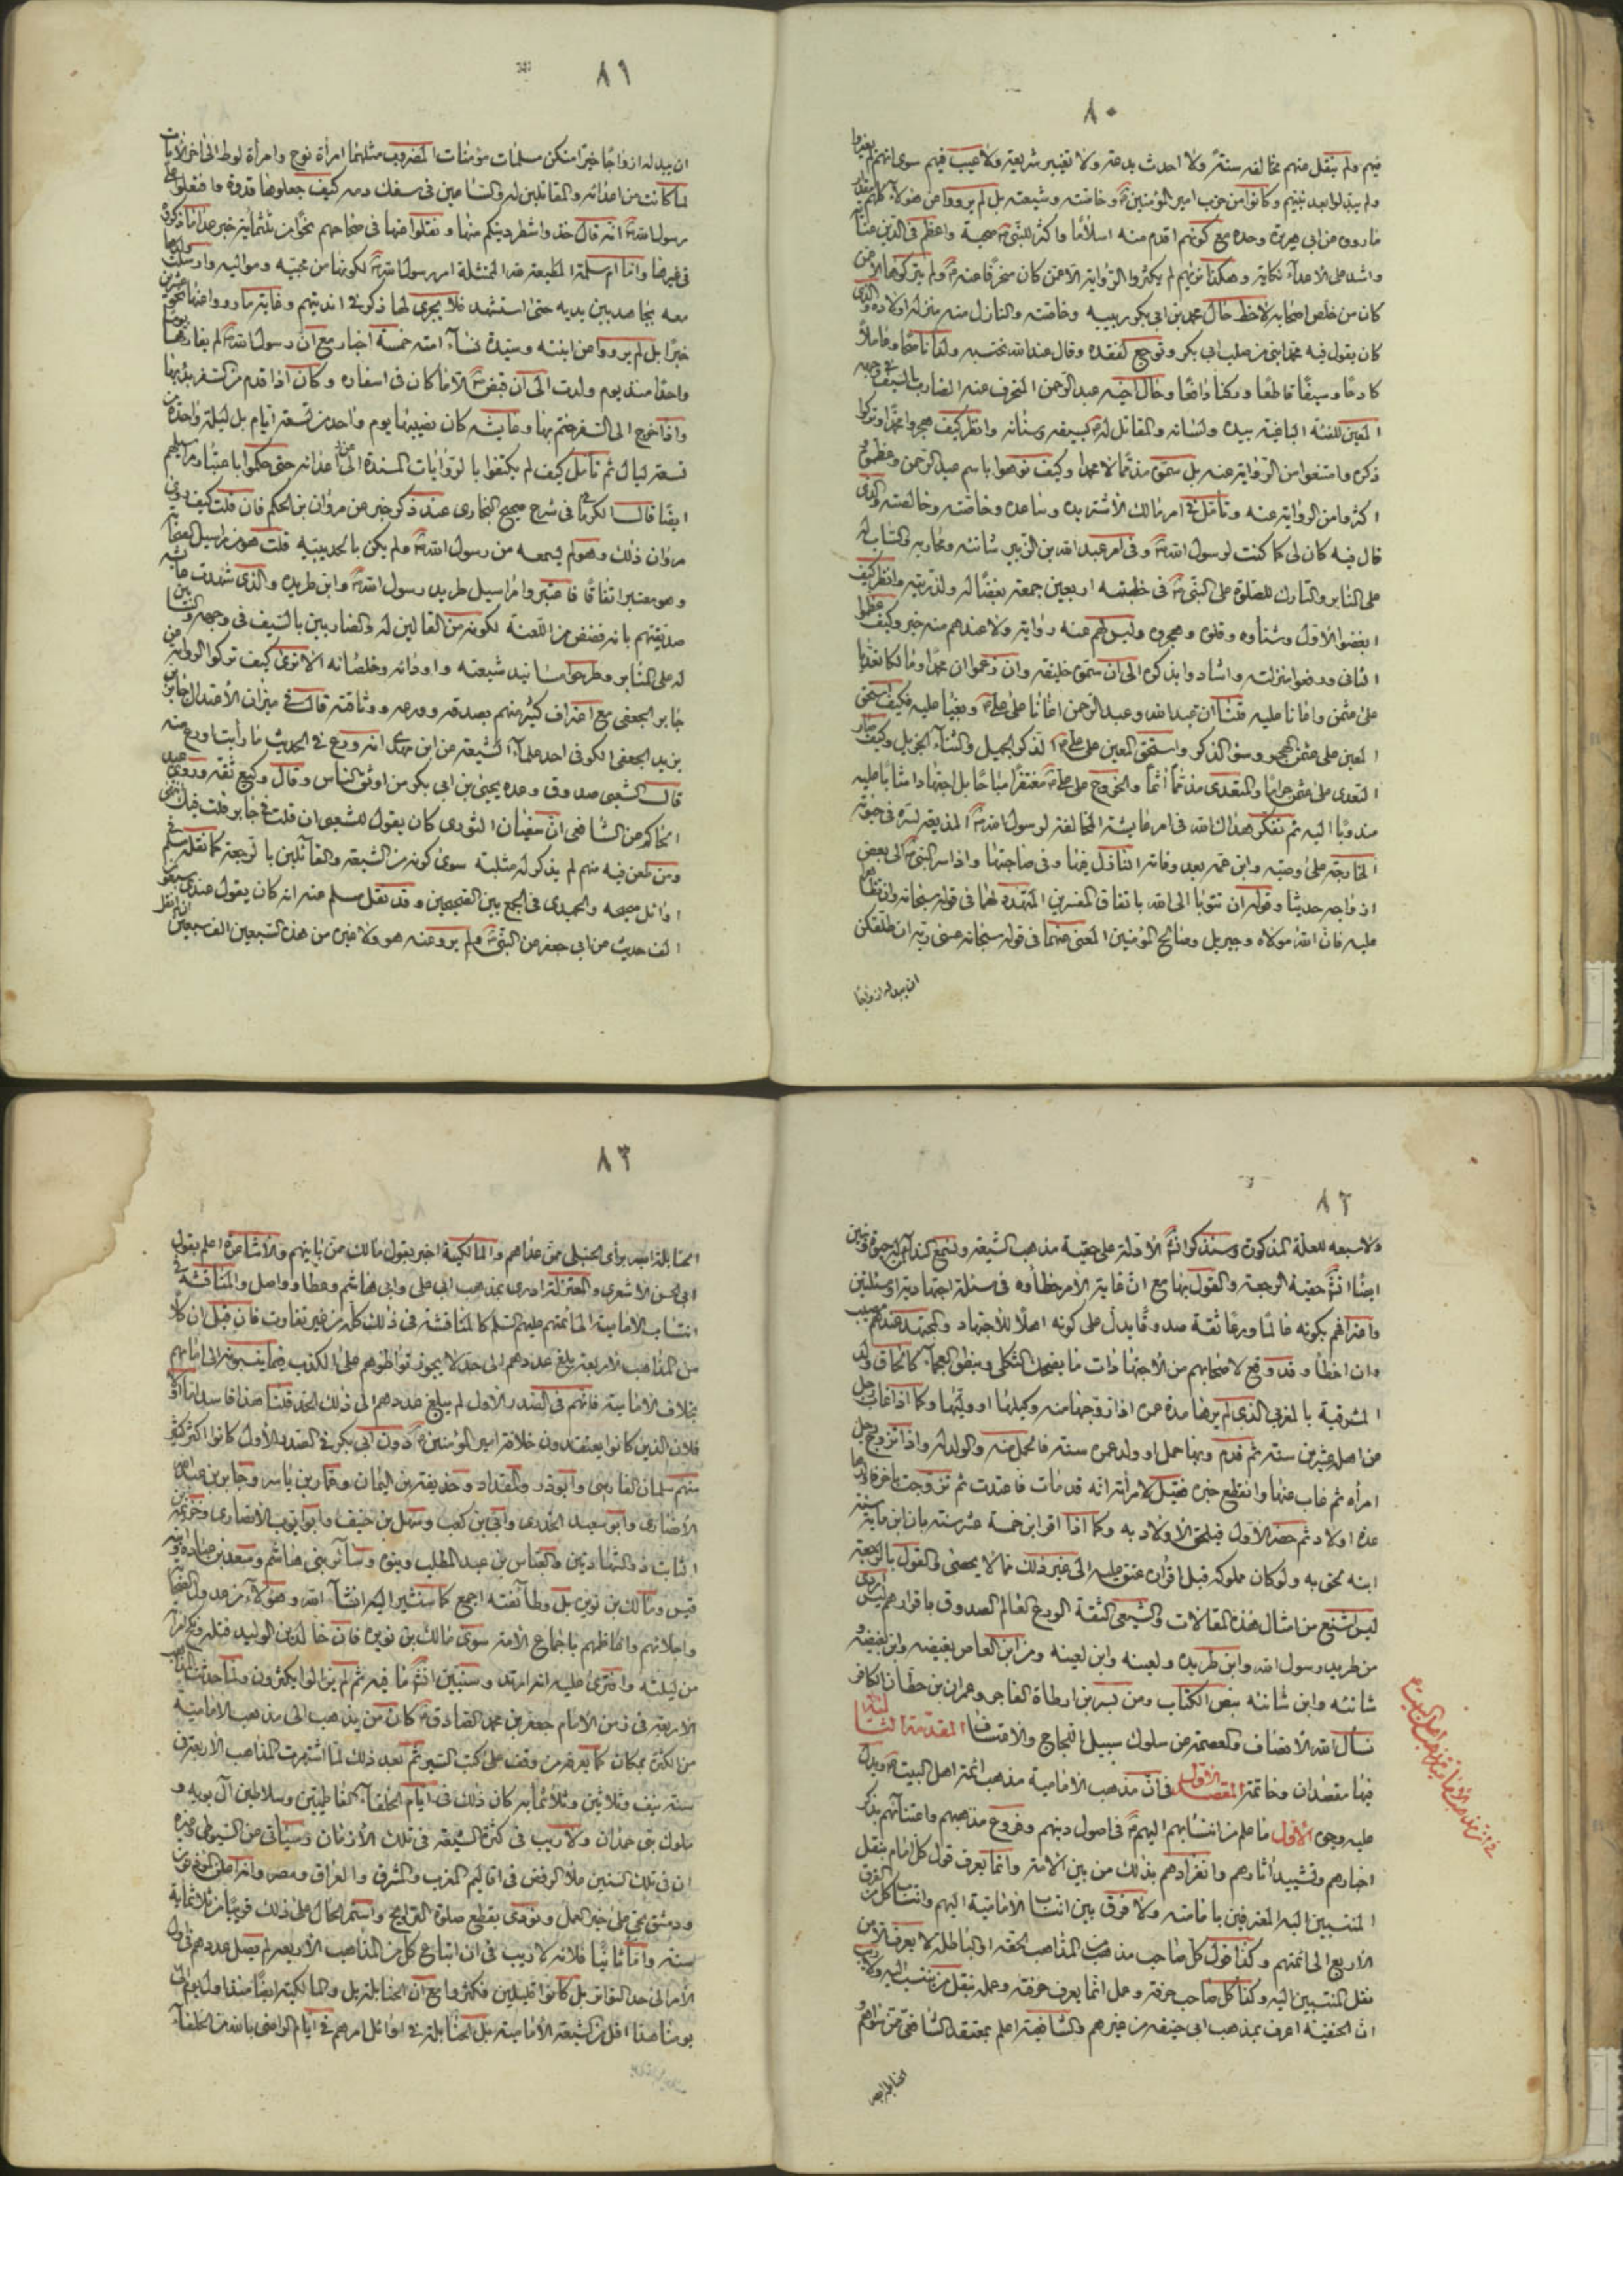 ٨٠
فيهم ولم ينقل عنهم مخالفه سنة ولا احدث بدعة ولا تغيير شريعة ولا عيب فيهم سوى انهم لم يغيروا
ولم يبدلوا بعد نبيهم وكانوا من حزب امير المؤمنين وخاصته وشيعته بل لم يرووا عن هؤلاء كلهم
ما روى عن ابى هريرة وحده مع كونهم اقدم منه اسلاما واكثر للنبي صحبة واعظم فى الدين
واشد على الاعداء نكاية وهكذا لم يكثروا الرواية الا عمن كان منحرفا عنه ولم يتركوها الا عمن
كان من خلص اصحابه لاحظ حال محمد بن ابى بكر ربيبه وخاصته والنازل منه منزلة اولاده والذى
كان يقول فيه محمد ابنى من صلب ابى بكر وتوجع لفقده وقال عند الله نحتسبه ولدا ناصحا وعاملا
كادحا وسيفا قاطعا وركنا دافعا وحال اخيه عبد الرحمن المنحرف عنه الضارب بالسيف فى وجهه
المعين للفئة الباغية بيده ولسانه والمقاتل له بسيفه وسنانه وانظر كيف هجروا محمدا وتركوا
ذكره وامتنعوا من الرواية عنه بل سموه مذمما لا محمدا وكيف نوهوا باسم عبد الرحمن وعظموه
اكثروا من الرواية عنه وتأمل فى امر مالك الاشتر يده وساعده وخاصته وخالصته والذى
قال فيه كان لى كما كنت لرسول الله وفى امر عبد الله بن الزبير شانئه ومحاربه والساب له
على المنابر والتارك للصلوة على النبي فى خطبته اربعين جمعة بغضا له ولذريته وانظر كيف
ابغضوا الاول وشناوه وقلوه وهجروه وليس لهم عنه رواية ولا عندهم منه خبر وكيف عظموا
الثانى ورفعوا منزلته واشادوا بذكره الى ان سموه خليفة وان زعموا ان محمدا ومالكا
على عثمن واعانا عليه قلنا ان عبد الله وعبد الرحمن اعانا على على وبغيا عليه فكيف استحق
المعين على عثمن الهجر وسوء الذكر واستحق المعين على على الذكر الجميل والثناء الجزيل وكيف صار
التعدى على عثمن حراما والتعدى مذمما اثما والخروج على على مغتفرا مباحا بل اجتهادا مثابا عليه
مندوبا اليه ثم تفكر هداك الله فى امر عايشة المخالفة لرسول الله المذيعة لسره فى حيوته
الخارجة على وصيه وابن عمه بعد وفاته النازل فيها وفى صاحبتها واذ اسر النبي الى بعض
ازواجه حديثا وقوله ان تتوبا الى الله باتفاق المفسرين المتهددة لهما فى قوله سبحانه وان تظاهرا
عليه فان الله مولاه وجبريل وصالح المؤمنين المعنى عنهما فى قوله سبحانه عسى ربه ان طلقكن
ان يبدله ازواجا
٨١
ان يبدله ازواجا خيرا منكن مسلمات مؤمنات المضروب مثلهما امرأة نوح وامرأة لوط الى اخر الايات
لما كانت من اعدائه والمقاتلين له والساعين فى سفك دمه كيف جعلوها قدوة وافتعلوا على
رسول الله انه قال خذوا شطر دينكم عنها ونقلوا عنها فى صحاحهم نحوا من ثلثمائة خبر عدا ما ذكروه
فى غيرها واما ام سلمة المطيعة لله الممتثلة امر رسول الله لكونها من محبيه ومواليه وارسلت ولدها
معه يجاهد بين يديه حتى استشهد فلا يجرى لها ذكر فى انديتهم وغاية ما رووا عنها نحو عشرين
خبرا بل لم يرووا عن ابنته وسيدة نساء امته خمسة اخبار مع ان رسول الله لم يفارقها يوما
واحدا منذ يوم ولدت الى ان قبض الا ما كان فى اسفاره وكان اذا قدم من السفر بدء بها
واذا خرج الى السفر ختم بها وعايشة كان نصيبها يوم واحد من تسعة ايام بل ليلة واحدة من
تسعة ليال ثم تأمل كيف لم يكتفوا بالروايات المسندة الى اعدائه حتى حكموا باعتبار مراسيلهم
ايضا قال الكرمانى فى شرح صحيح البخارى عند ذكر خبر عن مروان بن الحكم فان قلت كيف روى
مروان ذلك وهو لم يسمعه من رسول الله ولم يكن بالحديبية قلت هو من مراسيل الصحابة
وهو معتبر اتفاقا فاعتبروا مراسيل طريد رسول الله وابن طريده والذى شهدت عايشة
صديقتهم بانه فضض من اللعنة لكونه من القالين له والضاربين بالسيف فى وجهه والسابين
له على المنابر وطرحوا مسانيد شيعته واودائه وخلصائه الا ترى كيف تركوا الرواية عن
جابر الجعفى مع اعتراف كثير منهم بصدقه وورعه ووثاقته قال فى ميزان الاعتدال جابر بن
يزيد الجعفى الكوفى احد علماء الشيعة عن ابن مهدى انه ورع فى الحديث ما رأيت اورع منه
قال الشعبى صدوق وعده يحيى بن ابى بكر من اوثق الناس وقال وكيع ثقة وروى عبد
الحاكم عن الشافعى ان سفيان الثورى كان يقول للشعبى ان قلت فى جابر قلت فيك انتهى
ومن طعن فيه منهم لم يذكر له مثلبة سوى كونه من الشيعة والقائلين بالرجعة كما نقله مسلم فى
اوائل صحيحه والحميدى فى الجمع بين الصحيحين وقد نقل مسلم عنه انه كان يقول عندى سبعون
الف حديث عن ابى جعفر عن النبي ولم يرو عنه هو ولا غيره من هذه السبعين الف سبعين
٨٢
ولا سبعه للعلة المذكورة وسنذكر انشاء الادلة على حقية مذهب الشيعة
ايضا حقية الرجعة والقول بها مع ان غاية الامر خطأوه فى مسئلة اجتهادية او مسئلتين
واعترافهم بكونه عالما ورعا ثقة صدوقا يدل على كونه اهلا للاجتهاد والمجتهد عندهم مصيب
وان اخطأ وقد وقع لاصحابهم من الاجتهادات ما يضحك الثكلى وينطق العجماء كالحاق ولد
المشرقية بالمغربى الذى لم يرها مدة عمره اذا زوجها منه وكيلها او وليها وكما اذا غاب رجل
عن اهله عشرين سنة ثم قدم وبها حمل او ولد عمره سنة فالحمل منه والولد له واذا تزوج رجل
امرأه ثم غاب عنها وانقطع خبره فقيل لامرأته انه قد مات فاعتدت ثم تزوجت باخر
عدة اولاد ثم حضر الاول فيلحق الاولاد به وكما اذا اقر ابن خمسة عشر سنة بان ابن مائة سنة
ابنه لحق به ولو كان مملوكه قبل اقراره عتق عليه الى غير ذلك مما لا يحصى والقول بالرجعة
ليس بشنع من امثال هذه المقالات والشيعى الثقة الورع العالم الصدوق باقرارهم ليس اردى
من طريد رسول الله وابن طريده ولعينه وابن لعينه ومن ابن العاص بغيضه وابن بغيضه
شانئه وابن شانئه بنص الكتاب ومن بسر بن ارطاة الفاجر وعمران بن حطان الكافر
نسأل الله الانصاف والعصمة عن سلوك سبيل اللجاج والاعتساف المقدمة الثالثة
فيها مقصدان وخاتمة المقصد الاول فى ان مذهب الامامية مذهب ائمة اهل البيت ويدل
عليه وجوه الاول ما علم من انتسابهم اليهم فى اصول دينهم وفروع مذهبهم واعتنائهم بذكر
اخبارهم وتشييد اثارهم وانفرادهم بذلك من بين الامة وانما يعرف قول كل امام بنقل
المنتسبين اليه المعترفين بامامته ولا فرق بين انتساب الامامية اليهم وانتساب كل من الفرق
الاربع الى ائمتهم وكذا قول كل صاحب مذهب من المذاهب الحقة او الباطلة لا يعرف الا من
نقل المنتسبين اليه وكذا كل صاحب حرفة وعمل انما يعرف حرفته وعمله بنقل من ينتسب اليه ولا ريب
ان الحنفية اعرف بمذهب ابى حنيفه من غيرهم والشافعية اعلم بمعتقد الشافعى ممن سواهم
٨٣
الحنابلة ابصر برأى الحنبلى ممن عداهم والمالكية اخبر بقول مالك ممن باينهم والاشاعرة اعلم بقول
ابى الحسن الاشعرى والمعتزلة ادرى بمذهب ابى على وابى هاشم وعطا وواصل والمناقشة فى
انتساب الامامية الى ائمتهم عليهم السلم كالمناقشة فى ذلك كله من غير تفاوت فان قيل ان كلا
من المذاهب الاربعة بلغ عددهم الى حد لا يجوز تواطؤهم على الكذب فيما ينسبونه الى امامهم
بخلاف الامامية فانهم فى الصدر الاول لم يبلغ عددهم الى ذلك الحد قلنا هذا فاسد اما اولا
فلان الذين كانوا يعتقدون خلافة امير المؤمنين دون ابى بكر فى الصدر الاول كانوا اكثر كثير
منهم سلمان الفارسى وابو ذر والمقداد وحذيفة بن اليمان وعمار بن ياسر وجابر بن عبد الله
الانصارى وابو سعيد الخدرى وابى بن كعب وسهل بن حنيف وابو ايوب الانصارى وخزيمة بن
ثابت ذو الشهادتين والعباس بن عبد المطلب وبنوه وسائر بنى هاشم وسعد بن عباده
قيس ومالك بن نويره بل وطائفته اجمع كما سنشير اليه انشاء الله وهؤلاء من عدول الصحابة
واجلائهم واعاظمهم باجماع الامة سوى مالك بن نويره فان خالد بن الوليد قتله
من ليلته وافترى عليه انه ارتد وسنبين ما فيه ثم لم يزالوا يكثرون ولما حدثت المذاهب
الاربعة فى زمن الامام جعفر بن محمد الصادق كان من يذهب الى مذهب الامامية
من الكثرة بمكان كما يعرفه من وقف على كتب السير ثم بعد ذلك لما اشتهرت المذاهب الاربعة فى
سنة نيف وثلاثين وثلاثمائة كان ذلك فى ايام الخلفاء الفاطميين وسلاطين آل بويه و
ملوك بنى حمدان ولا ريب فى كثرة الشيعة فى تلك الازمان وسيأتى عن السيوطى وغيره
ان فى تلك السنين علا الرفض فى اقاليم المغرب والمشرق والعراق ومصر
ودمشق بحى على خير العمل ونودى بقطع صلوة التراويح واستمر الحال على ذلك قريبا من ثلاثماية
سنة واما ثانيا فلانه لا ريب فى ان اتباع كل من المذاهب الاربعة لم يصل عددهم فى اول
الامر الى حد التواتر بل كانوا قليلين فكثروا مع ان الحنابلة بل والمالكية ايضا
يومنا هذا اقل من الشيعة الامامية بل الحنابلة فى اوائل امرهم فى ايام الراضى بالله من الخلفاء